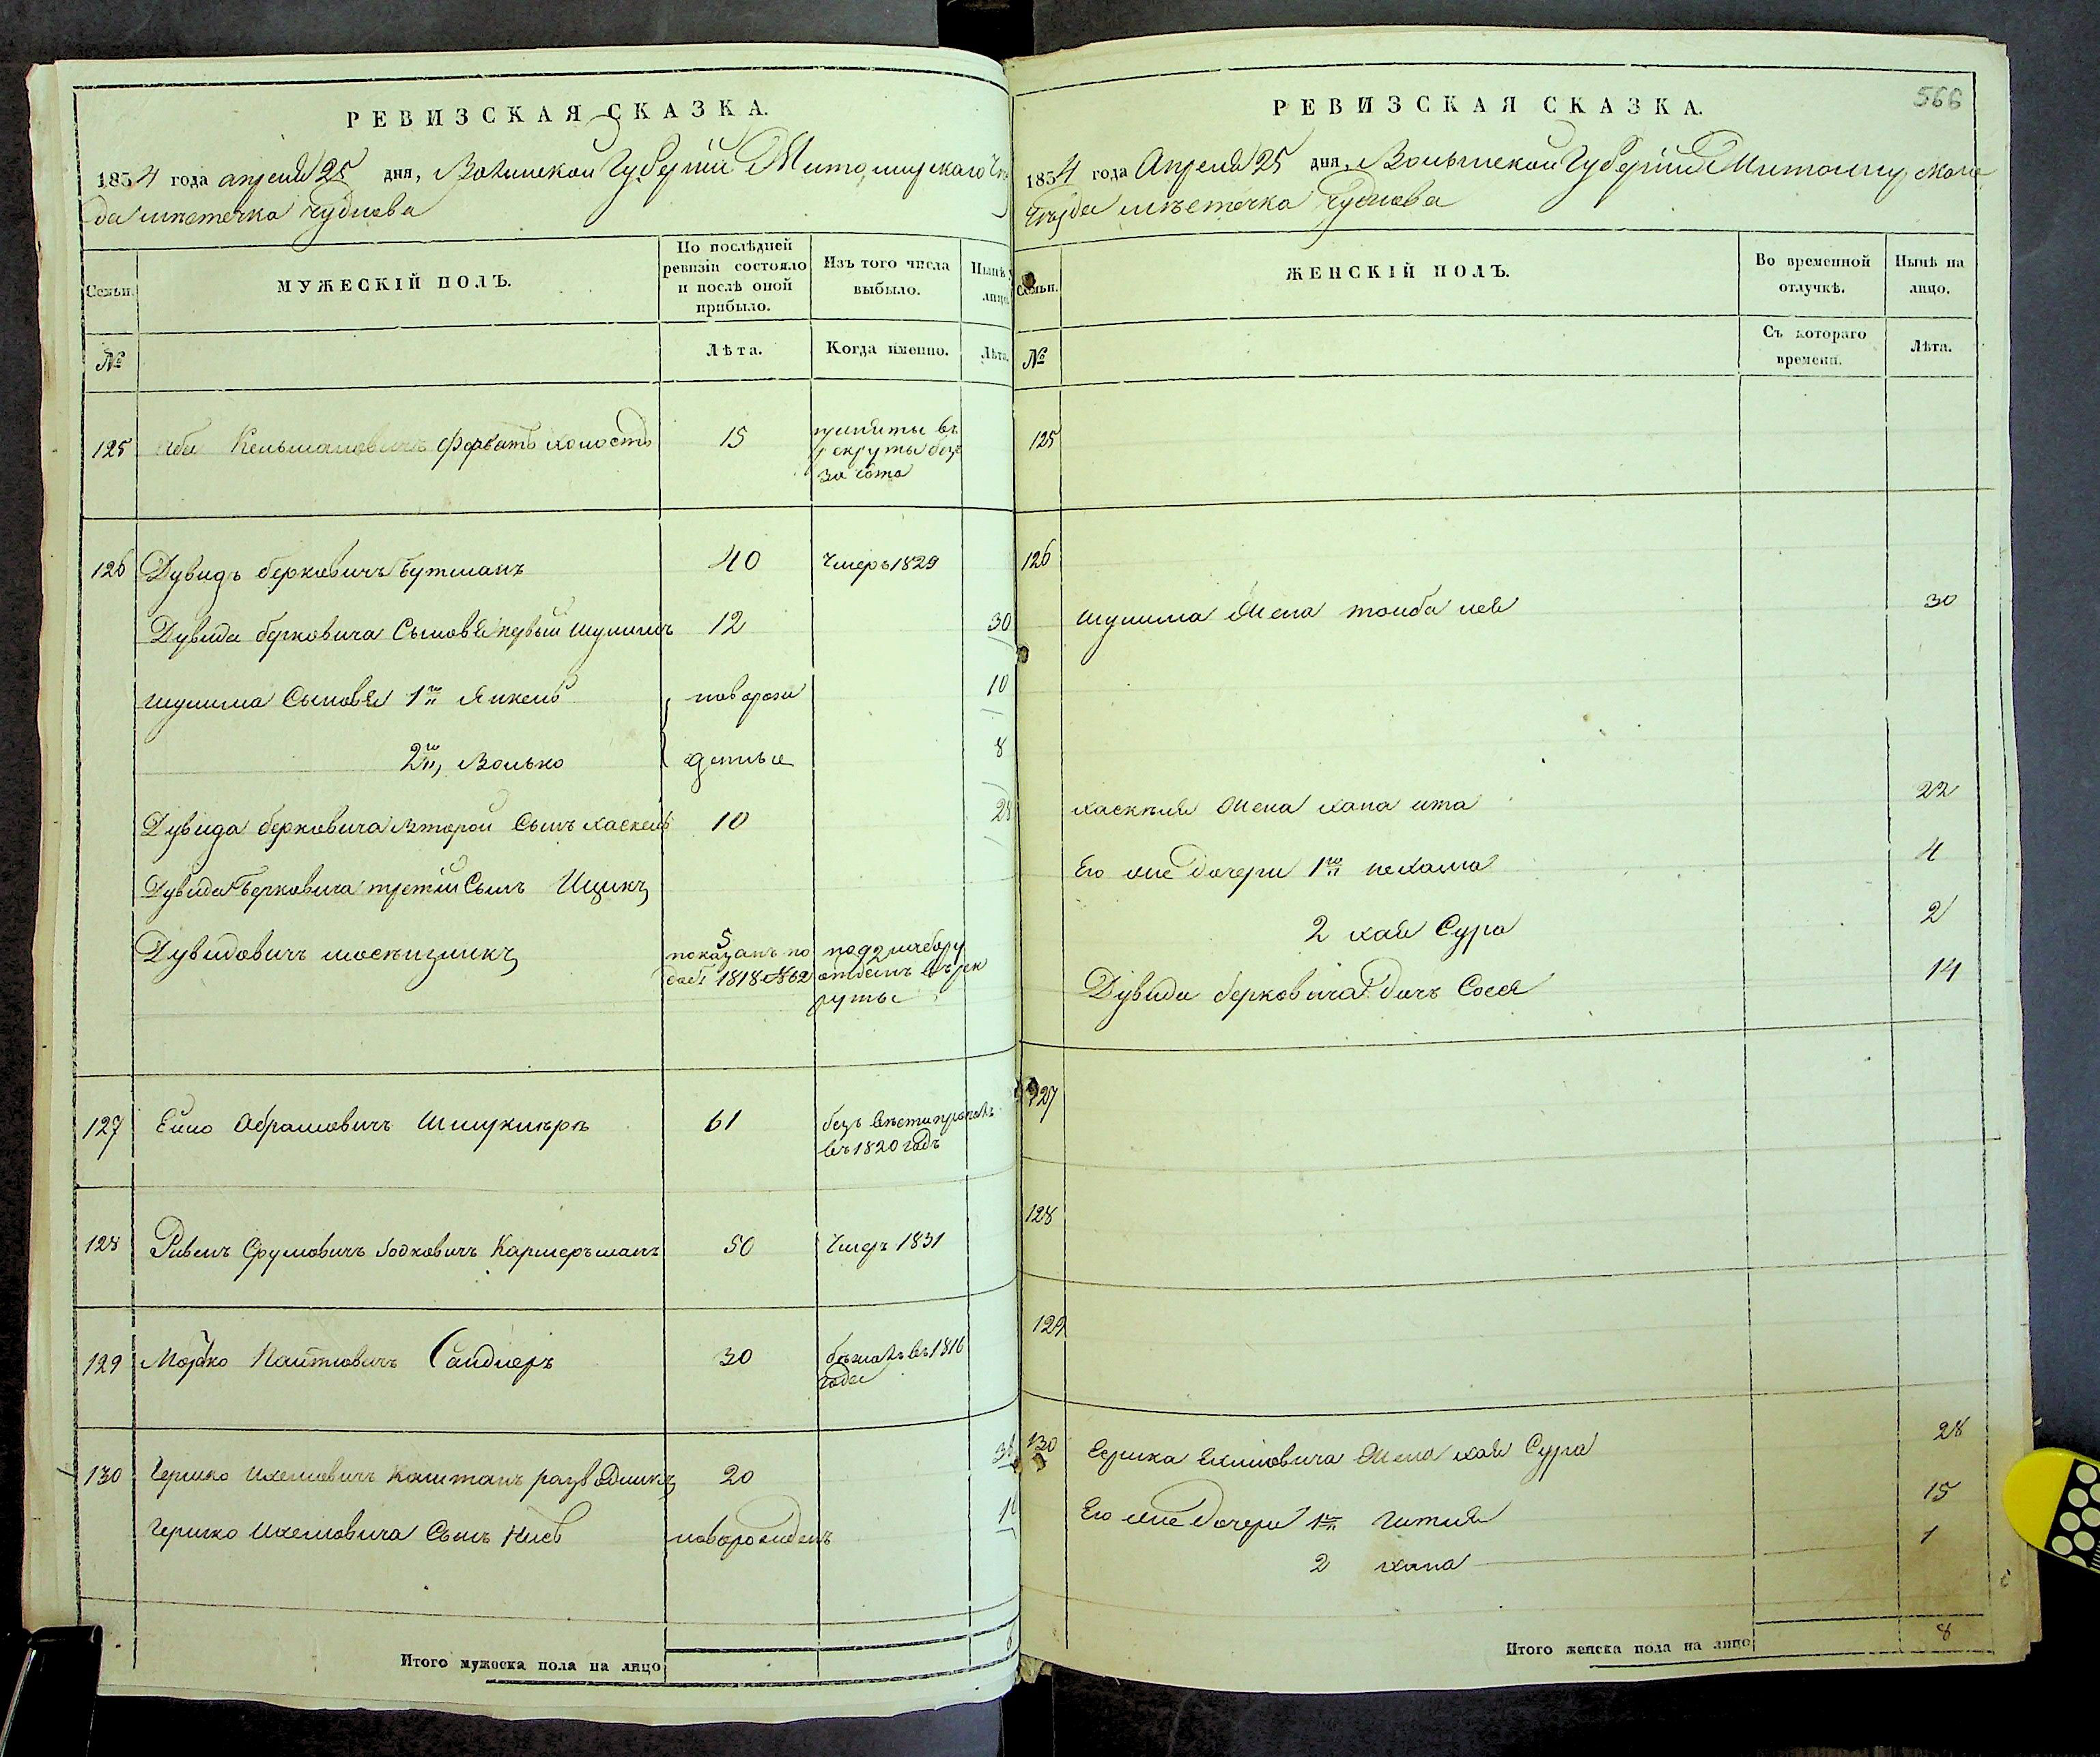 РЕВИЗСКАЯ СКАЗКА.
1834 года апреля 25 дня, Волынской Губерніи Житомирскаго Уѣз
да мѣстечка Чуднова
Семьи.
МУЖЕСКІЙ ПОЛЪ.
По послѣдней ревизіи состояло и послѣ оной прибыло.
Изъ того числа выбыло.
Нынѣ
лицо.
№
Лѣта.
Когда именно.
Лѣта.
125 Кельмановичъ холостъ 15 приняты въ
рекруты безъ
зачота
126 Дувидъ берковичъ Гутманъ 40 Умеръ 1829
Дувида берковича Сыновья первый Шулимъ 12 30
Шулима Сыновья 1й Янкель новорож 10
2й, Волько денные 8
Дувида берковича второй Сынъ хаскель 10 28
Дувида Берковича третій Сынъ Ицикъ
Дувидовичъ 5
показанъ по
1818 №62
отданъ въ рек
руты
127 Абрамовичъ 61 безъ вѣсти пропалъ
въ 1820 годѣ
128 Рувенъ Сруловичъ 50 Умеръ 1831
129 Мошко Сандлеръ 30 бѣжалъ въ 1816
годе
130 Гершко Ихелювичъ Каштанъ 20
Гершко Ихеловича Сынъ новорожденъ
Итого мужеска пола на лицо 6
566
РЕВИЗСКАЯ СКАЗКА.
1834 года Апреля 25 дня, Волынской Губерніи Житомирскаго
Уѣзда мѣстечка Чуднова
Семьи.
ЖЕНСКІЙ ПОЛЪ.
Во временной отлучкѣ.
Нынѣ на лицо.
№
Съ котораго времени.
Лѣта.
125
126
Шулима Жена тоиба лея 30
хаскеля Жена хана ита 22
Его же Дочери 1я нехама 4
2 хая Сура 2
Дувида берковича Дочъ Сося 14
127
128
129
130 Гершка Жена хая Сура 28
Его же Дочери 1я Гитля 15
2 хана 1
Итого женска пола на лицо 8